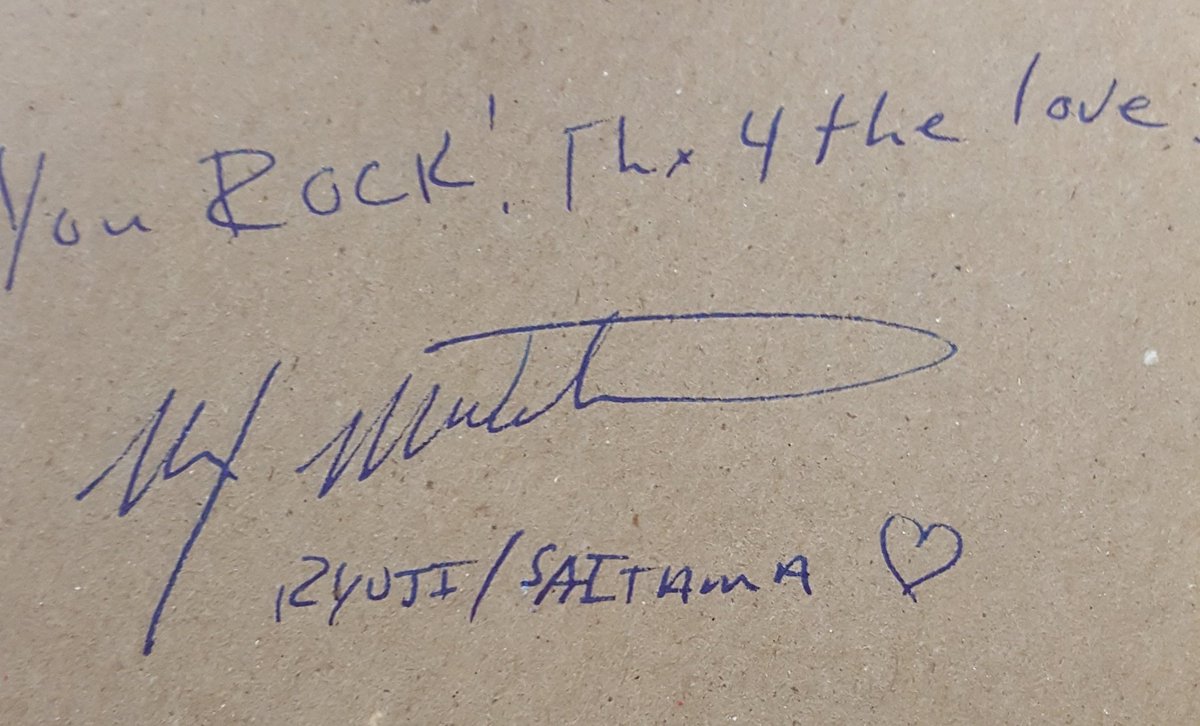 You ROCK! Thx 4 the love.
RYUJI/SAITAMA